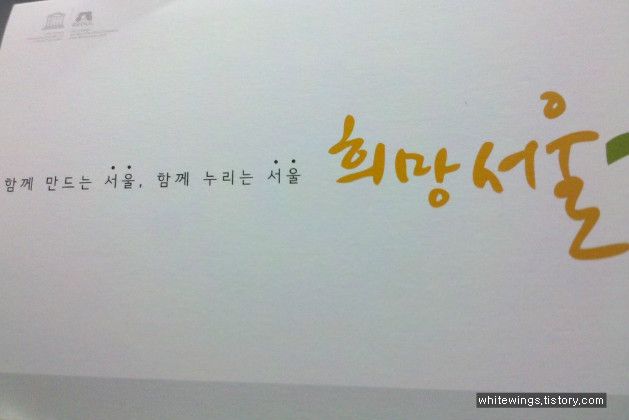 SEOUL
함께 만드는 서울, 함께 누리는 서울
희망서울
whitewings.tistory.com